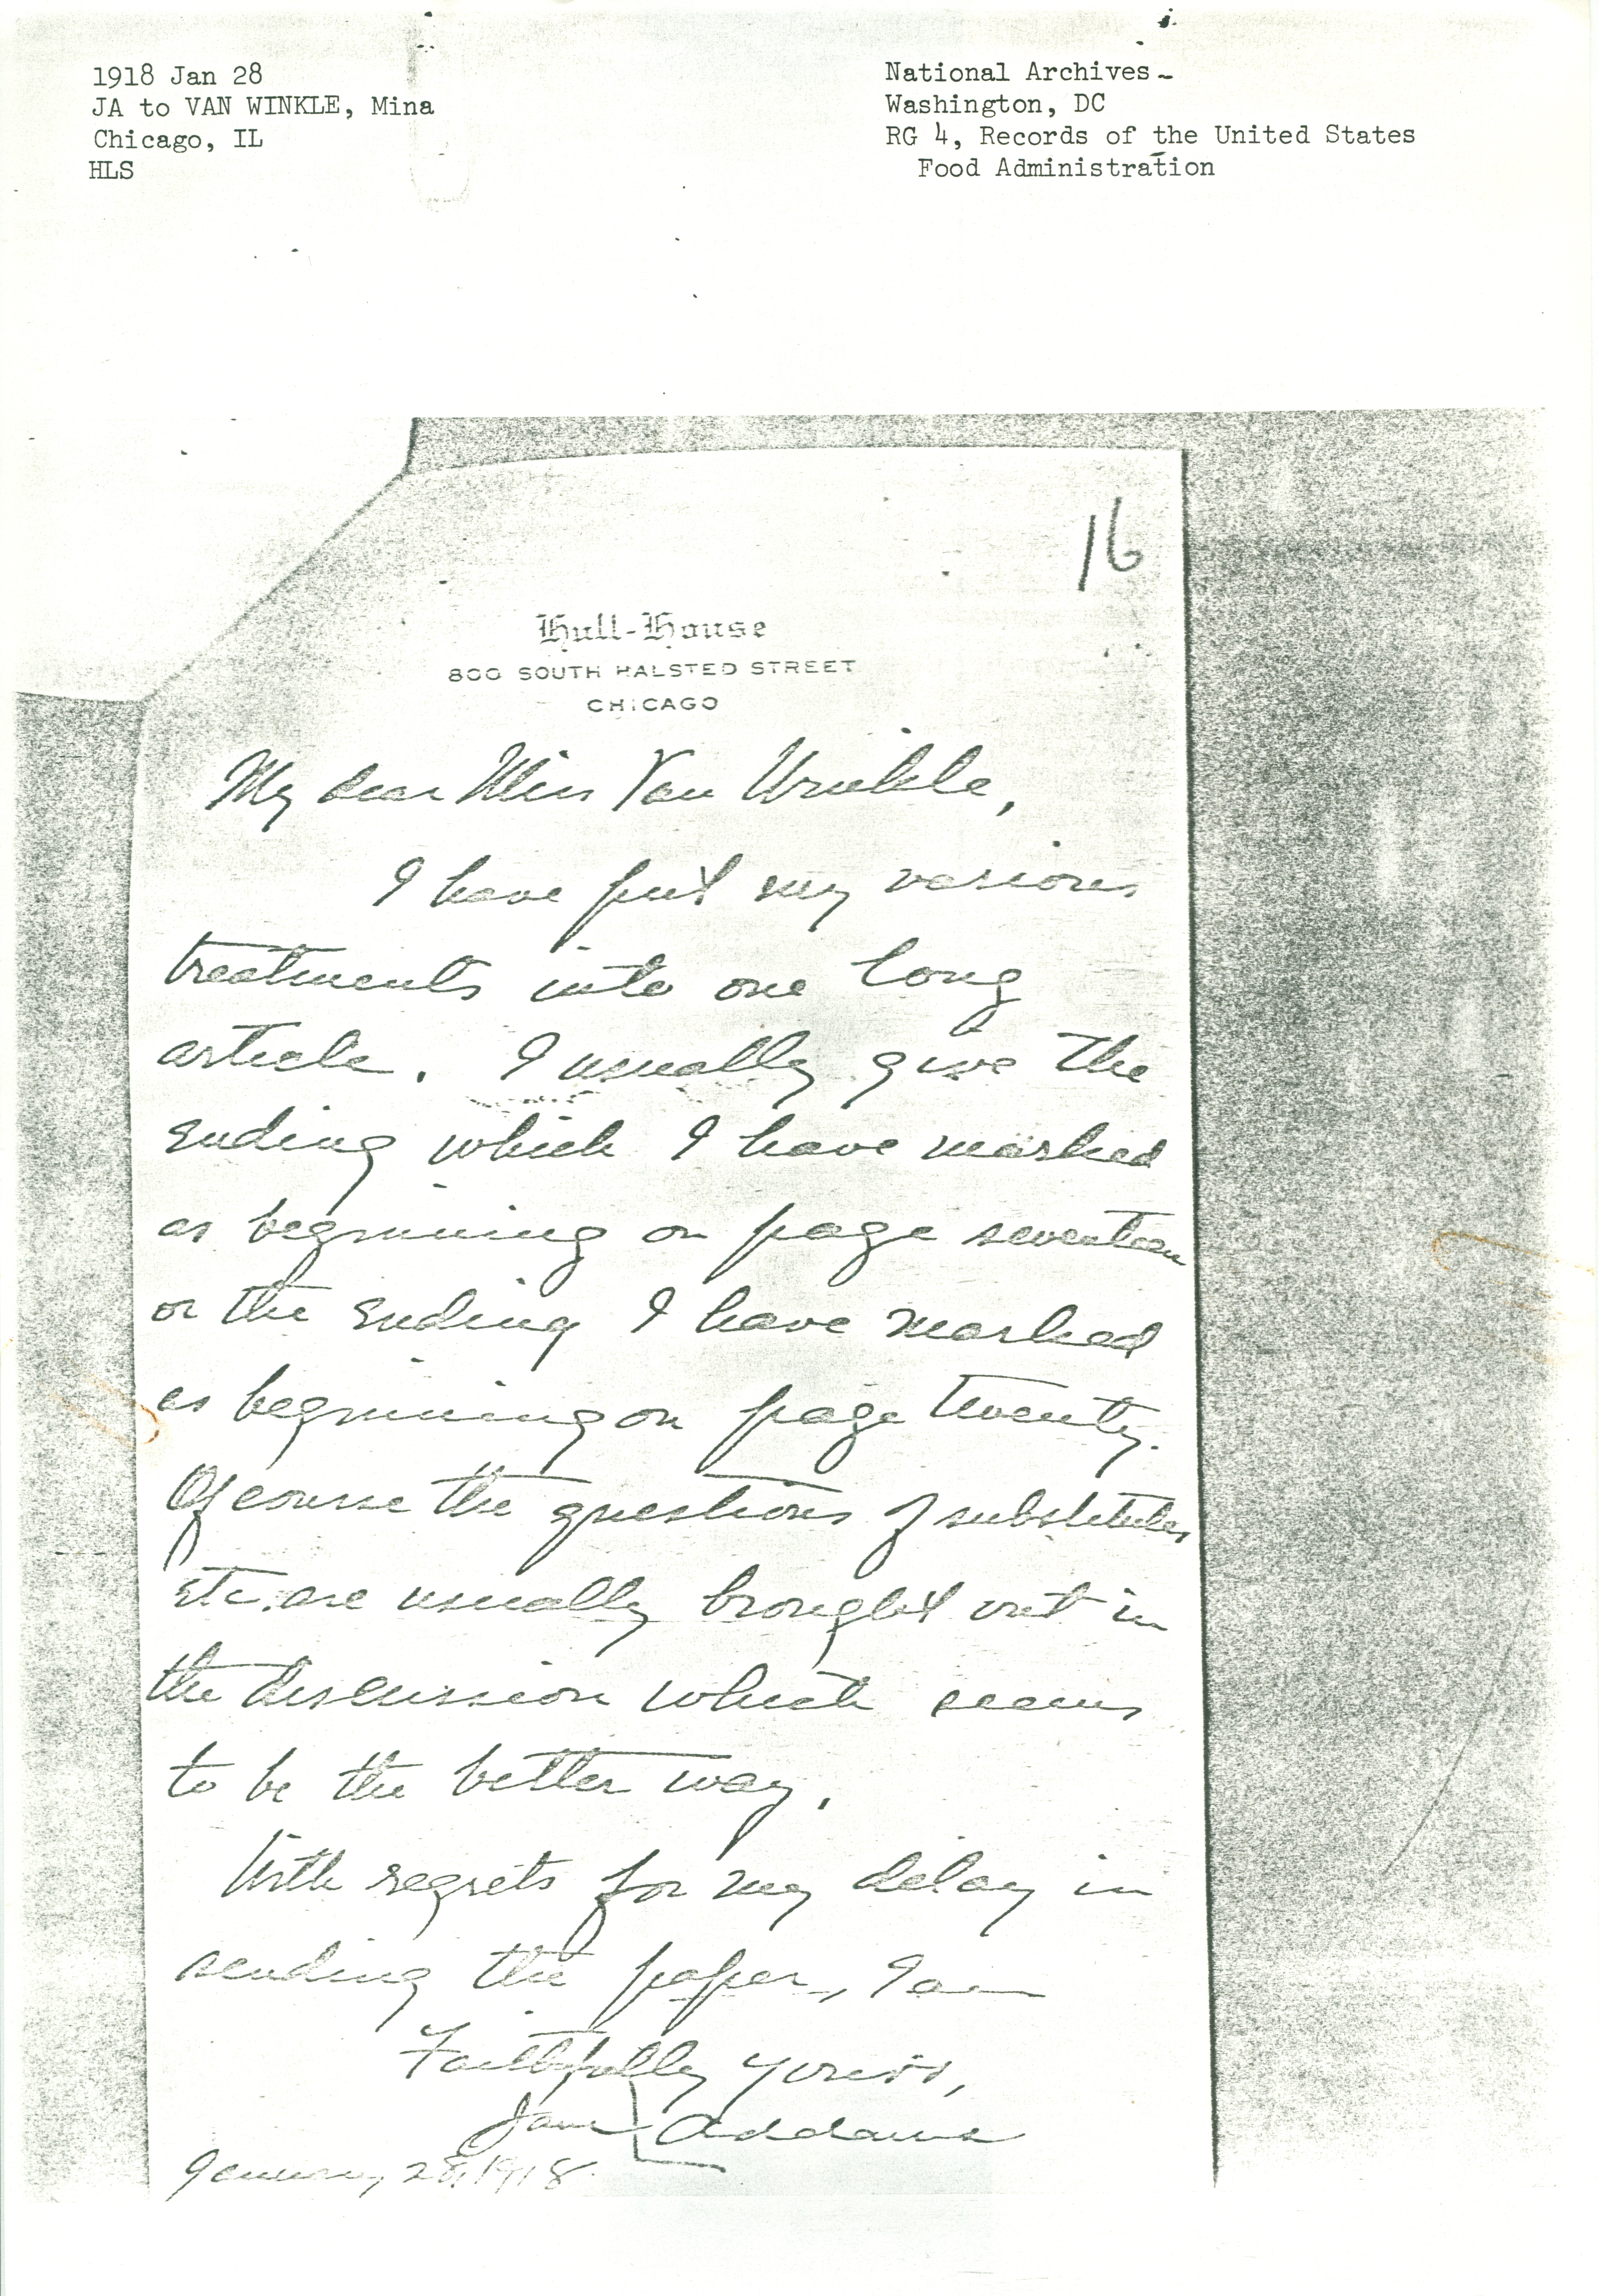 1918 Jan 28
JA to VAN WINKLE, Mina
Chicago, IL
HLS
National Archives-
Washington, DC
RG 4, Records of the United States
Food Administration
16
Hull-House
800 SOUTH HALSTED STREET
CHICAGO
My dear Miss Van Winkle,
I have put my various
treatments into one long
article. I usually give the
ending which I have marked
as beginning on page seventeen
or the ending I have marked
as beginning on page twenty.
Of course the questions of substitutes
etc. are usually brought out in
the discussion which seems
to be the better way.
With regrets for my delay in
sending the paper, I am
Faithfully yours,
Jane Addams
January 28, 1918